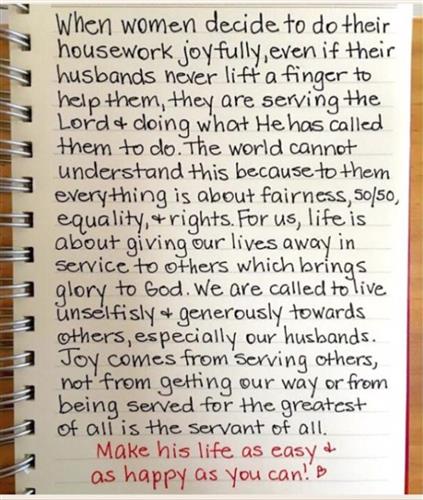 When women decide to do their
housework joyfully, even if their
husbands never lift a finger to
help them, they are serving the
Lord & doing what He has called
them to do. The world cannot
understand this because to them
everything is about fairness, 50/50,
equality, & rights. For us, life is
about giving our lives away in
service to others which brings
glory to God. We are called to live
unselfisly & generously towards
others, especially our husbands.
Joy comes from serving others,
not from getting our way or from
being served for the greatest
of all is the servant of all.
Make his life as easy &
as happy as you can!